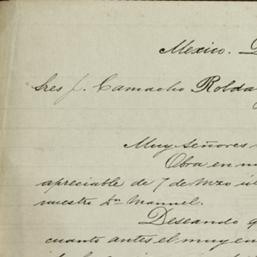 Mexico.
Sres J. Camacho Rolda
Muy Señores
Obra en m
apreciable de 7 de Mzo ú
nuestro Dn Manuel.
Deseando q
cuanto antes el muy en